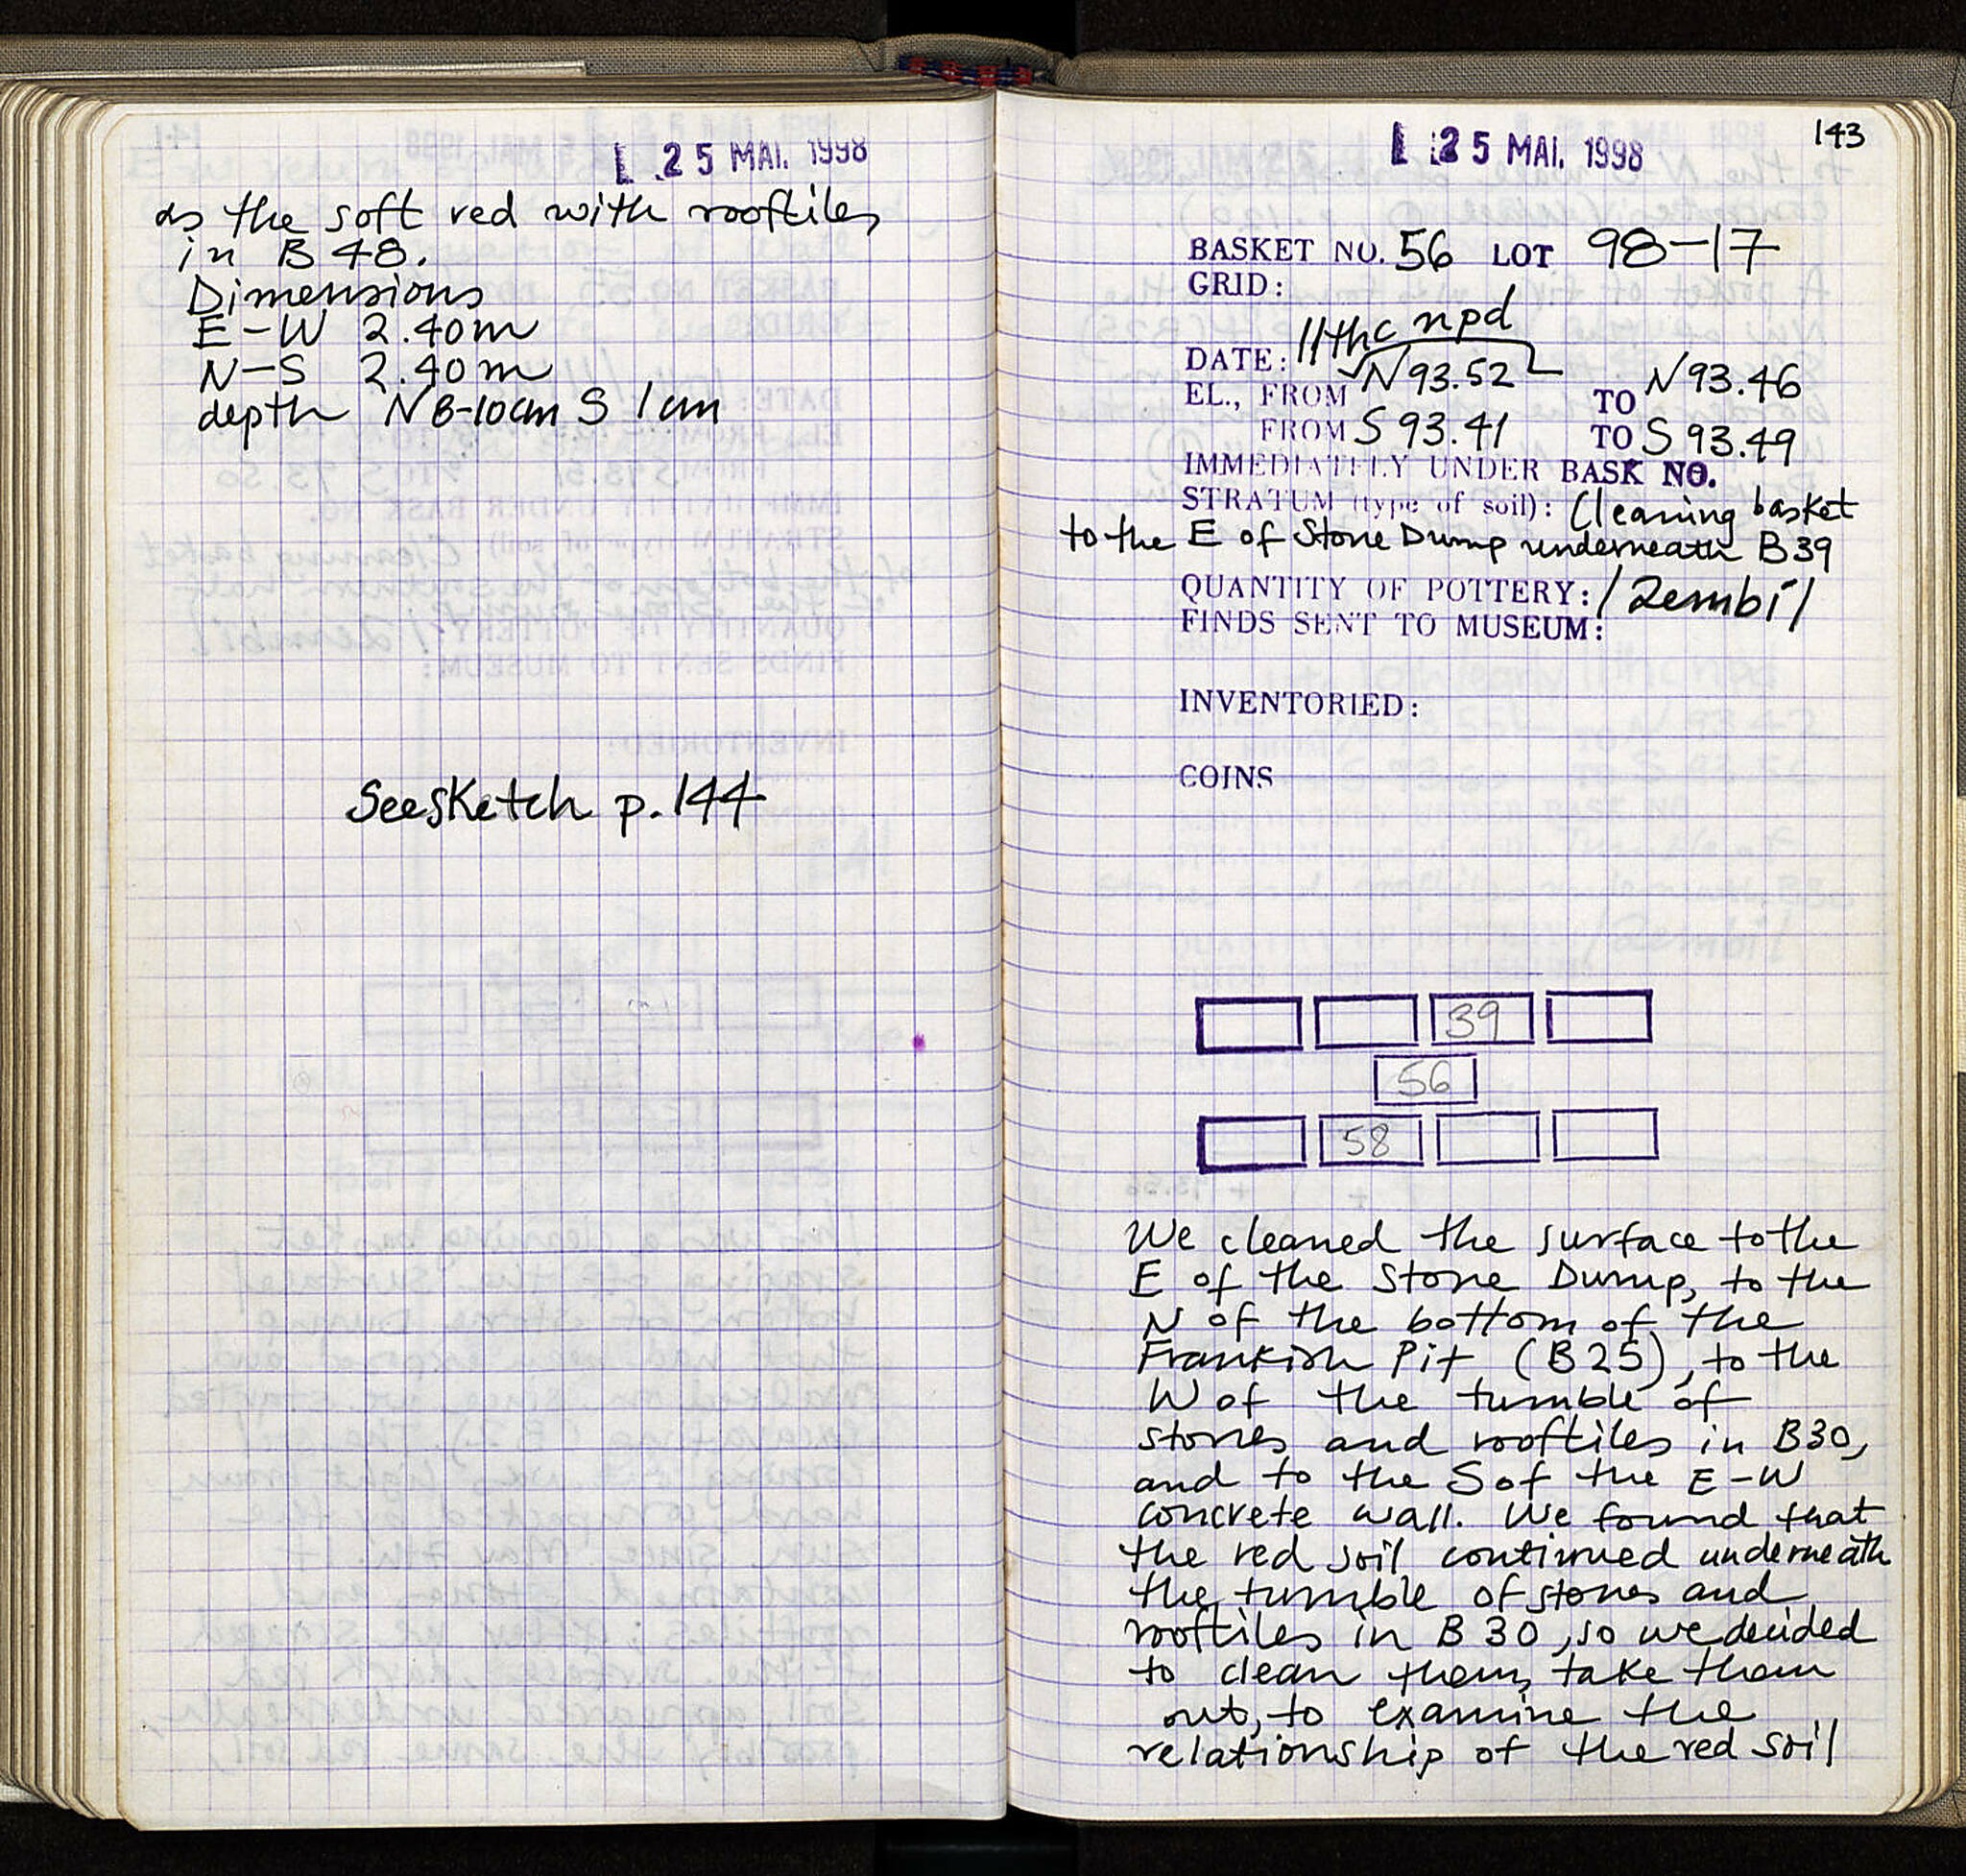 25 MAI. 1998
as the soft red with rooftiles
in B 48.
Dimensions
E-W 2.40m
N-S 2.40m
depth N 8-10cm S 1cm
See sketch p. 144
143
25 MAI. 1998
BASKET NO. 56 LOT 98-17
GRID:
DATE: 11thc npd
EL., FROM N 93.52 TO N 93.46
FROM S 93.41 TO S 93.49
IMMEDIATELY UNDER BASK NO.
STRATUM (type of soil): Cleaning basket
to the E of Stone Dump underneath B39
QUANTITY OF POTTERY: 1 Zembil
FINDS SENT TO MUSEUM:
INVENTORIED:
COINS
39
56
58
We cleaned the surface to the
E of the Stone Dump, to the
N of the bottom of the
Frankish Pit (B25), to the
W of the tumble of
stones and rooftiles in B30,
and to the S of the E-W
concrete wall. We found that
the red soil continued underneath
the tumble of stones and
rooftiles in B 30, so we decided
to clean them, take them
out, to examine the
relationship of the red soil